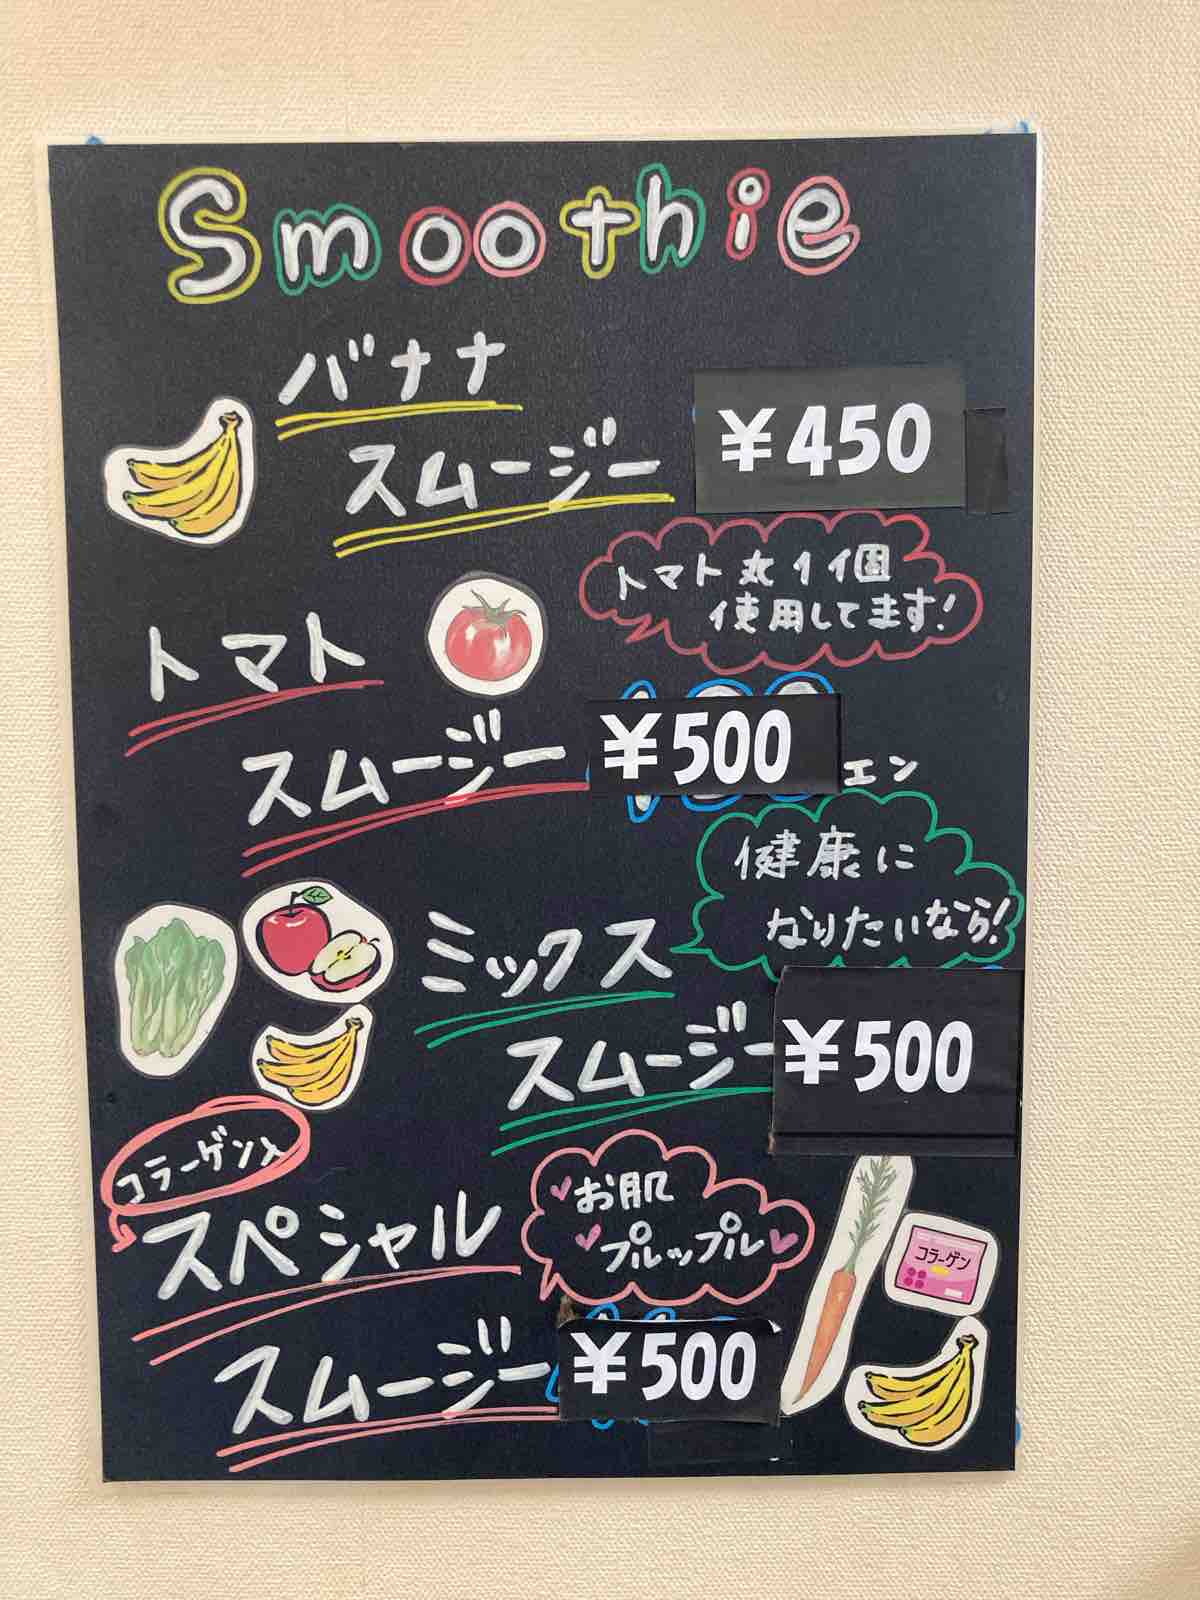 Smoothie
バナナ
スムージー ¥450
トマト丸々1個
使用してます!
トマト
スムージー ¥500 エン
健康に
なりたいなら!
ミックス
スムージー ¥500
コラーゲン入
スペシャル
お肌
プルップル
コラーゲン
スムージー ¥500